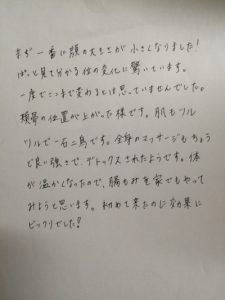 まず一番に顔の大きさが小さくなりました!
ぱっと見て分かる位の変化に驚いています。
一度でここまで変わるとは思っていませんでした。
頬骨の位置が上がった様です。肌もツル
ツルで一石二鳥です。全身のマッサージもちょう
ど良い強さで、デトックスされたようです。体
が温かくなったので、腸もみを家でもやって
みようと思います。初めて来たのに効果に
ビックリでした!